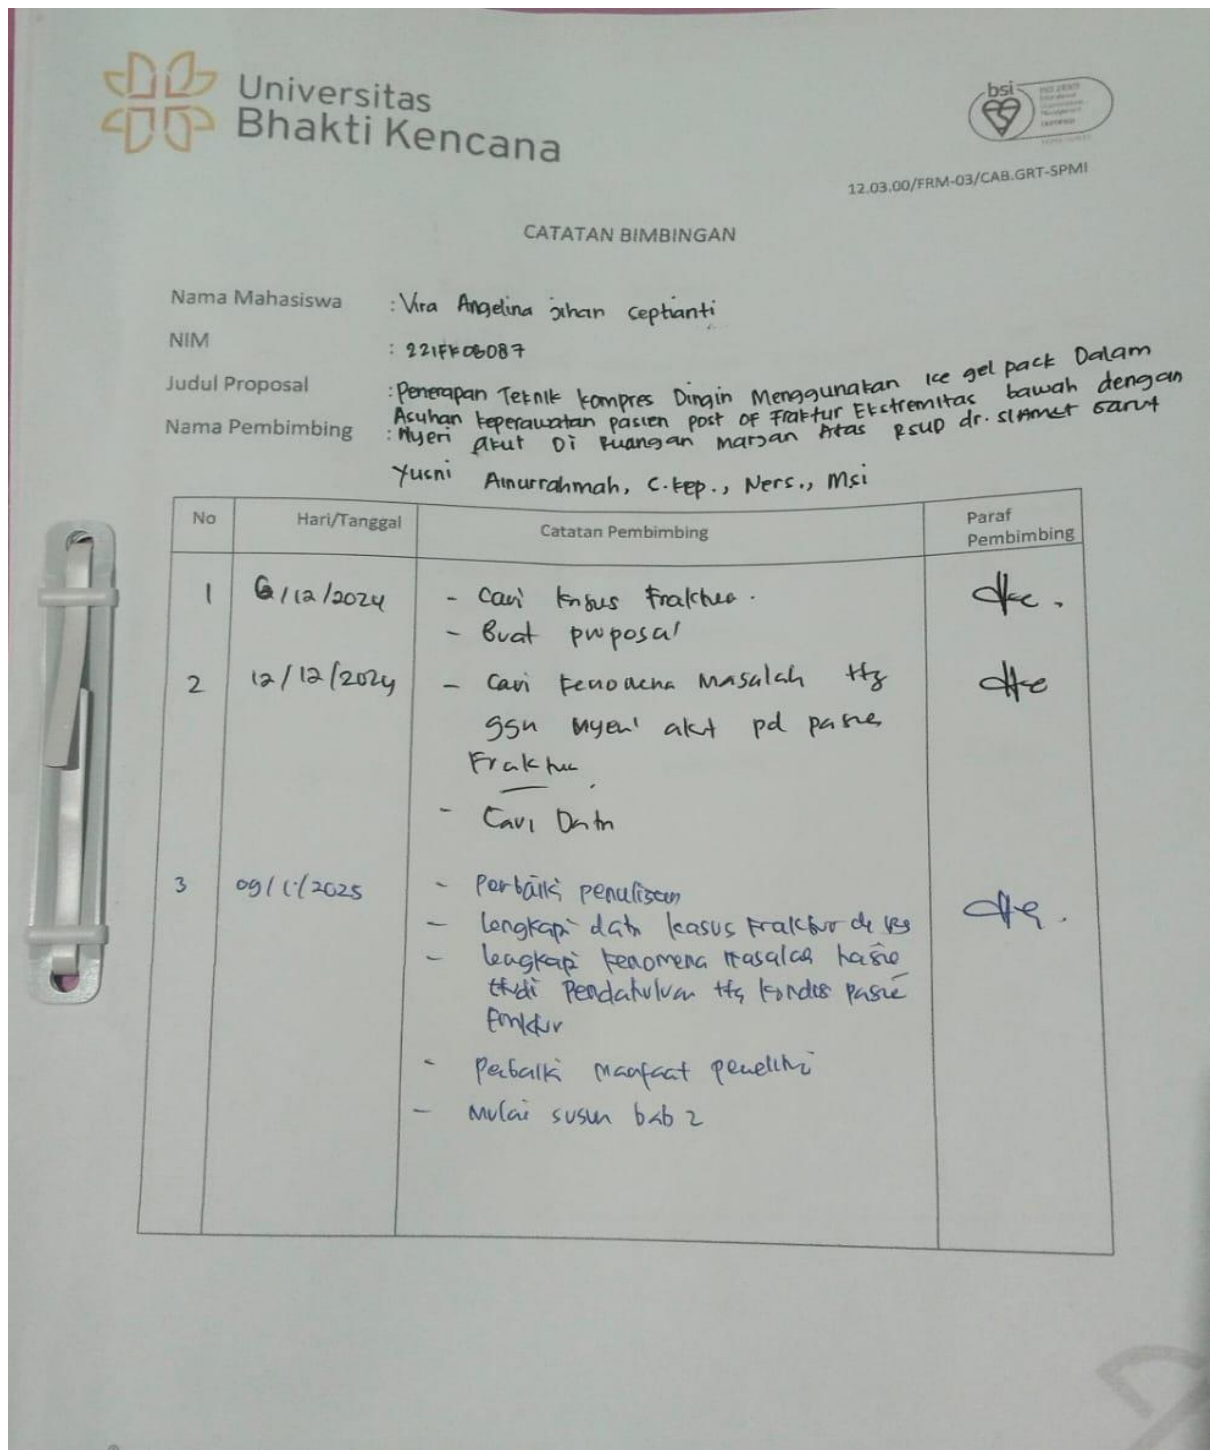 Universitas
Bhakti Kencana
bsi
12.03.00/FRM-03/CAB.GRT-SPMI
CATATAN BIMBINGAN
Nama Mahasiswa : Vira Angelina Jihan Septianti
NIM : 221FK06087
Judul Proposal : Penerapan Teknik kompres Dingin Menggunakan Ice gel pack Dalam
Asuhan keperawatan pasien post OF Fraktur Ekstremitas bawah dengan
Nama Pembimbing : Nyeri Akut Di Ruangan Marjan Atas RSUD dr. Slamet Garut
Yusni Ainurrahmah, S.kep., Ners., Msi
No Hari/Tanggal Catatan Pembimbing Paraf
Pembimbing
1 6/12/2024 - Cari kasus Fraktur.
- Buat proposal
2 12/12/2024 - Cari Fenomena Masalah ttg
ggn Nyeri akut pd pasien
Fraktur
- Cari Data
3 09/1/2025 - Perbaiki penulisan
- lengkapi data kasus Fraktur di RS
- lengkapi Fenomena Masalah hasil
studi Pendahuluan ttg kondisi pasien
fraktur
- Perbaiki manfaat peneliti
- Mulai susun bab 2